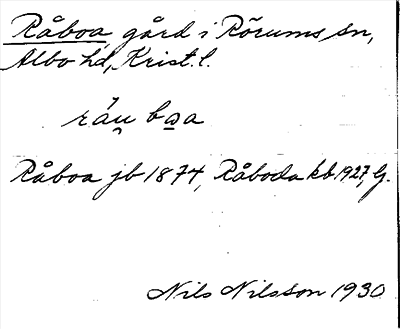 Råboa, gård i Rörums sn,
Albo hd, Krist. l.
råu boa
Råboa jb 1874, Råboda kb 1927, G.
Nils Nilsson 1930